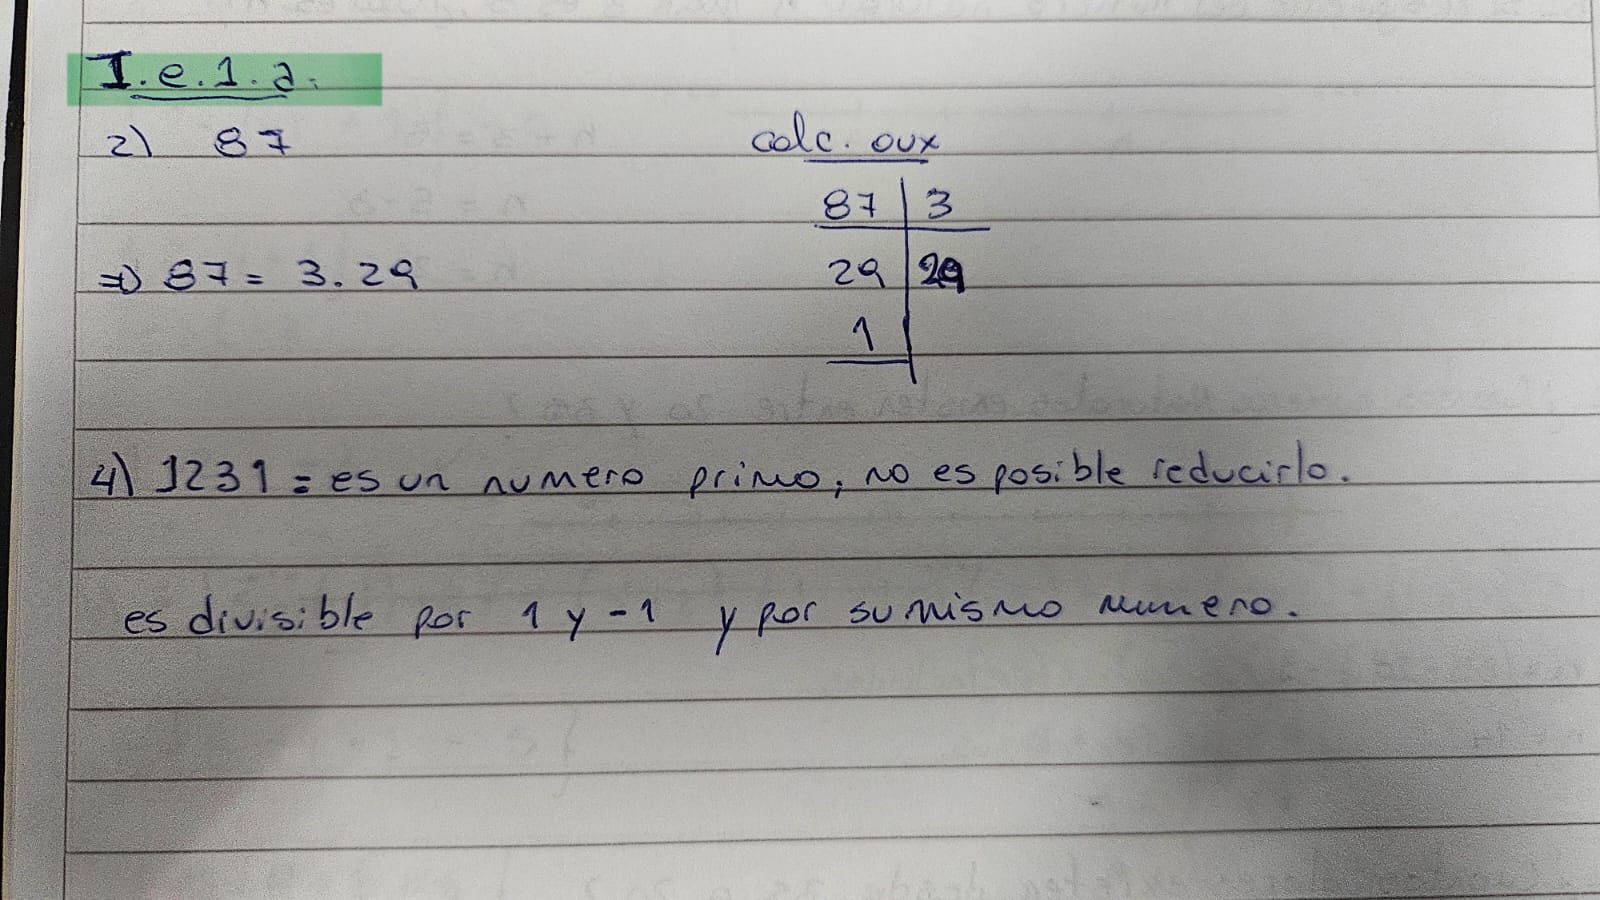 I.e.1.a.
2) 87
calc. aux
87 | 3
⇒ 87 = 3.29
29 | 29
1
4) 1231 = es un numero primo, no es posible reducirlo.
es divisible por 1 y -1 y por su mismo numero.